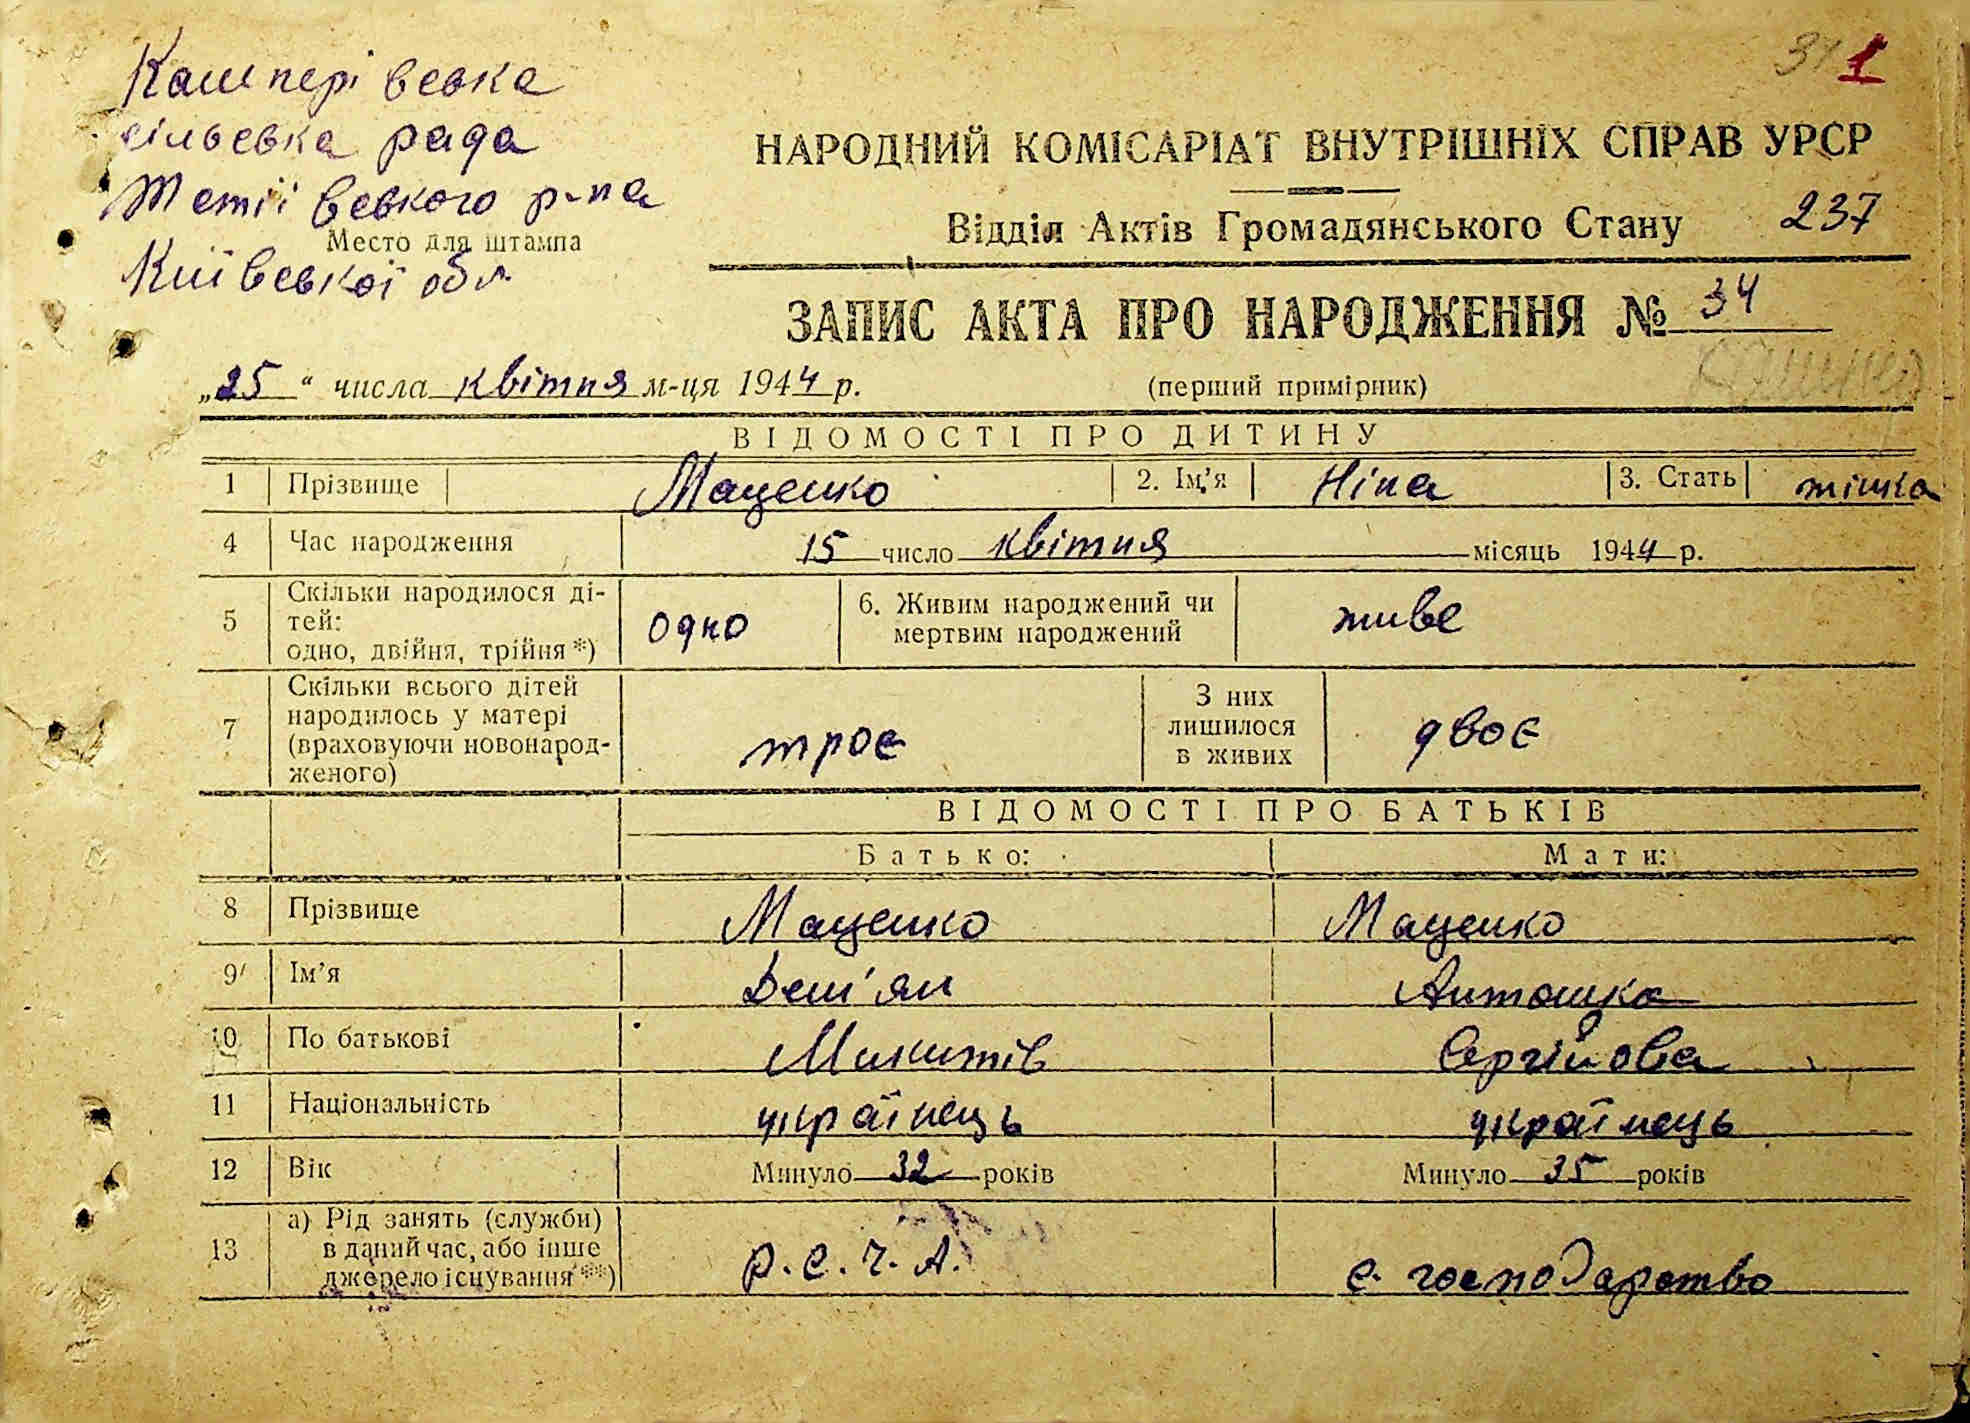 31 1
Кашперівська
сільська рада
Тетіївського р-на
Место для штампа
Київської обл
НАРОДНИЙ КОМІСАРІАТ ВНУТРІШНІХ СПРАВ УРСР
Відділ Актів Громадянського Стану 237
ЗАПИС АКТА ПРО НАРОДЖЕННЯ № 34
„25“ числа квітня м-ця 1944 р. (перший примірник)
ВІДОМОСТІ ПРО ДИТИНУ
1 Прізвище Маценко 2. Ім'я Ніна 3. Стать жінка
4 Час народження 15 число квітня місяць 1944 р.
5 Скільки народилося ді-
тей:
одно, двійня, трійня*) одно 6. Живим народжений чи
мертвим народжений живе
7 Скільки всього дітей
народилось у матері
(враховуючи новонарод-
женого) троє З них
лишилося
в живих двоє
ВІДОМОСТІ ПРО БАТЬКІВ
Батько: Мати:
8 Прізвище Маценко Маценко
9 Ім'я Дем'ян Антошка
10 По батькові Микитів Сергійова
11 Національність українець українець
12 Вік Минуло 32 років Минуло 35 років
13 а) Рід занять (служби)
в даний час, або інше
джерело існування**) Р.С.Ч.А. с. господарство